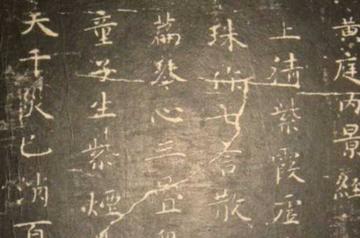 黄庭内景經
上清紫霞虛
珠作七言散
篇琴心三疊
童子生紫煙
天千灾已消百